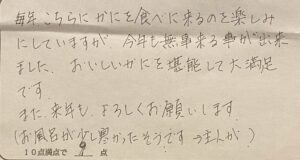 毎年こちらにかにを食べに来るのを楽しみ
にしていますが、今年も無事来る事が出来
ました。おいしいかにを堪能して大満足
です。
また、来年も、よろしくお願いします。
(お風呂が少し寒かったそうです→主人が)
10点満点で 9 点